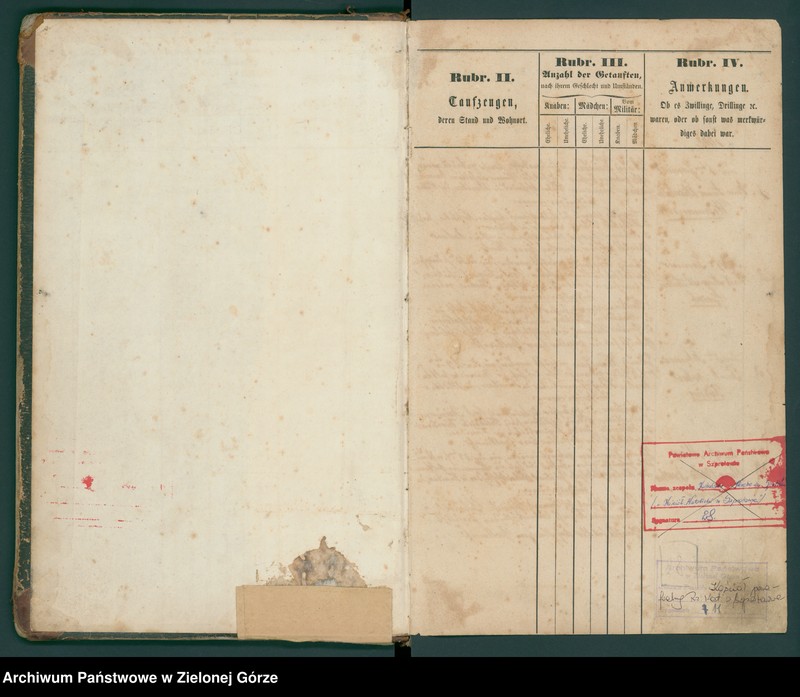 Rubr. II.
Taufzeugen,
deren Stand und Wohnort.
Rubr. III.
Anzahl der Getauften,
nach ihrem Geschlecht und Umständen.
Knaben: Mädchen: Vom Militär:
Eheliche. Uneheliche. Eheliche. Uneheliche. Knaben. Mädchen
Rubr. IV.
Anmerkungen.
Ob es Zwillinge, Drillinge ꝛc.
waren, oder ob sonst was merkwür-
diges dabei war.
Powiatowe Archiwum Państwowe
w Szprotawie
Nazwa zespołu
Sygnatura 28
Archiwum Państwowe w Zielonej Górze